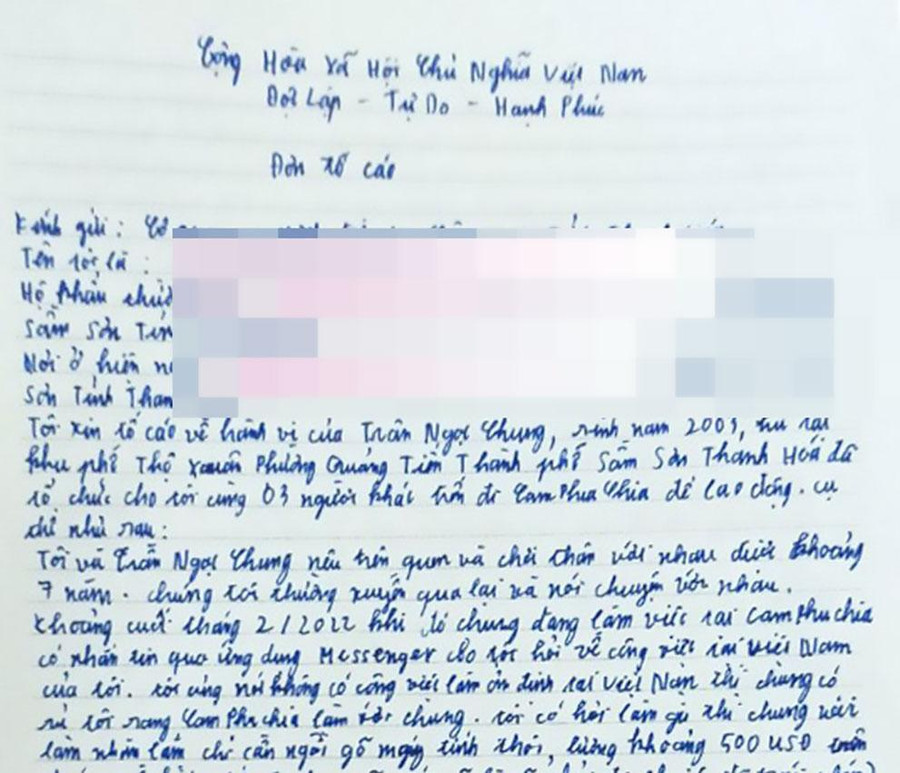 Cộng Hòa Xã Hội Chủ Nghĩa Việt Nam
Độc Lập - Tự Do - Hạnh Phúc
Đơn tố cáo
Kính gửi :
Tên tôi là :
Hộ khẩu
Sầm Sơn
Nơi ở hiện
Sơn Tỉnh
Tôi xin tố cáo về hành vi của Trần Ngọc Chung, sinh năm 2003, trú tại
khu phố Thọ Xuân Phường Quảng Tiến Thành phố Sầm Sơn Thanh Hóa đã
tổ chức cho tôi cùng 03 người khác trốn đi CamPhuChia để lao động. cụ
thể như sau :
Tôi và Trần Ngọc Chung nêu trên quen và chơi thân với nhau được khoảng
7 năm. chúng tôi thường xuyên qua lại và nói chuyện với nhau.
Khoảng cuối tháng 2/2022 khi đó chung đang làm việc tại Camphuchia
có nhắn tin qua ứng dụng Messenger cho tôi hỏi về công việc tại Việt Nam
của tôi. tôi cũng nói không có công việc làm ổn định tại Việt Nam thì chung có
rủ tôi sang CamPhuchia làm với chung. tôi có hỏi làm gì thì chung nói
làm nhàn lắm chỉ cần ngồi gõ máy tính thôi, lương khoảng 500 USD trên